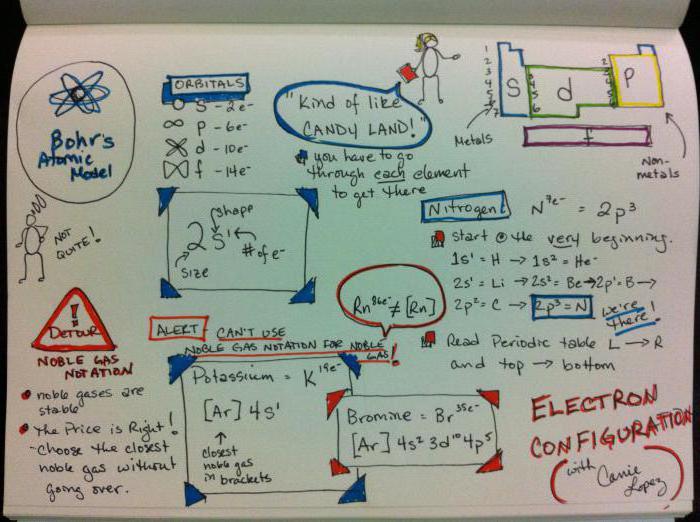 Bohr's
Atomic
Model
NOT
QUITE!
ORBITALS
S - 2e⁻
P - 6e⁻
d - 10e⁻
f - 14e⁻
"Kind of like
CANDY LAND!"
you have to go
through each element
to get there
1
2
3
4
5
6
7
S
d
P
f
Metals
Non-
metals
shape
2S¹
size
# of e⁻
Nitrogen N⁷ᵉ⁻ = 2p³
start @ the very beginning.
1s¹ = H → 1s² = He
2s¹ = Li → 2s² = Be → 2p¹ = B →
2p² = C → 2p³ = N
we're
there!
Read Periodic table L → R
and top → bottom
Rn⁸⁶ᵉ⁻ ≠ [Rn]
!
DETOUR
NOBLE GAS
NOTATION
noble gases are
stable
The Price is Right!
- Choose the closest
noble gas without
going over.
ALERT CAN'T USE
NOBLE GAS NOTATION FOR NOBLE
GAS!
Potassium = K¹⁹ᵉ⁻
[Ar] 4s¹
↑
closest
noble gas
in brackets
Bromine = Br³⁵ᵉ⁻
[Ar] 4s² 3d¹⁰ 4p⁵
ELECTRON
CONFIGURATION
with Carrie
Lopez